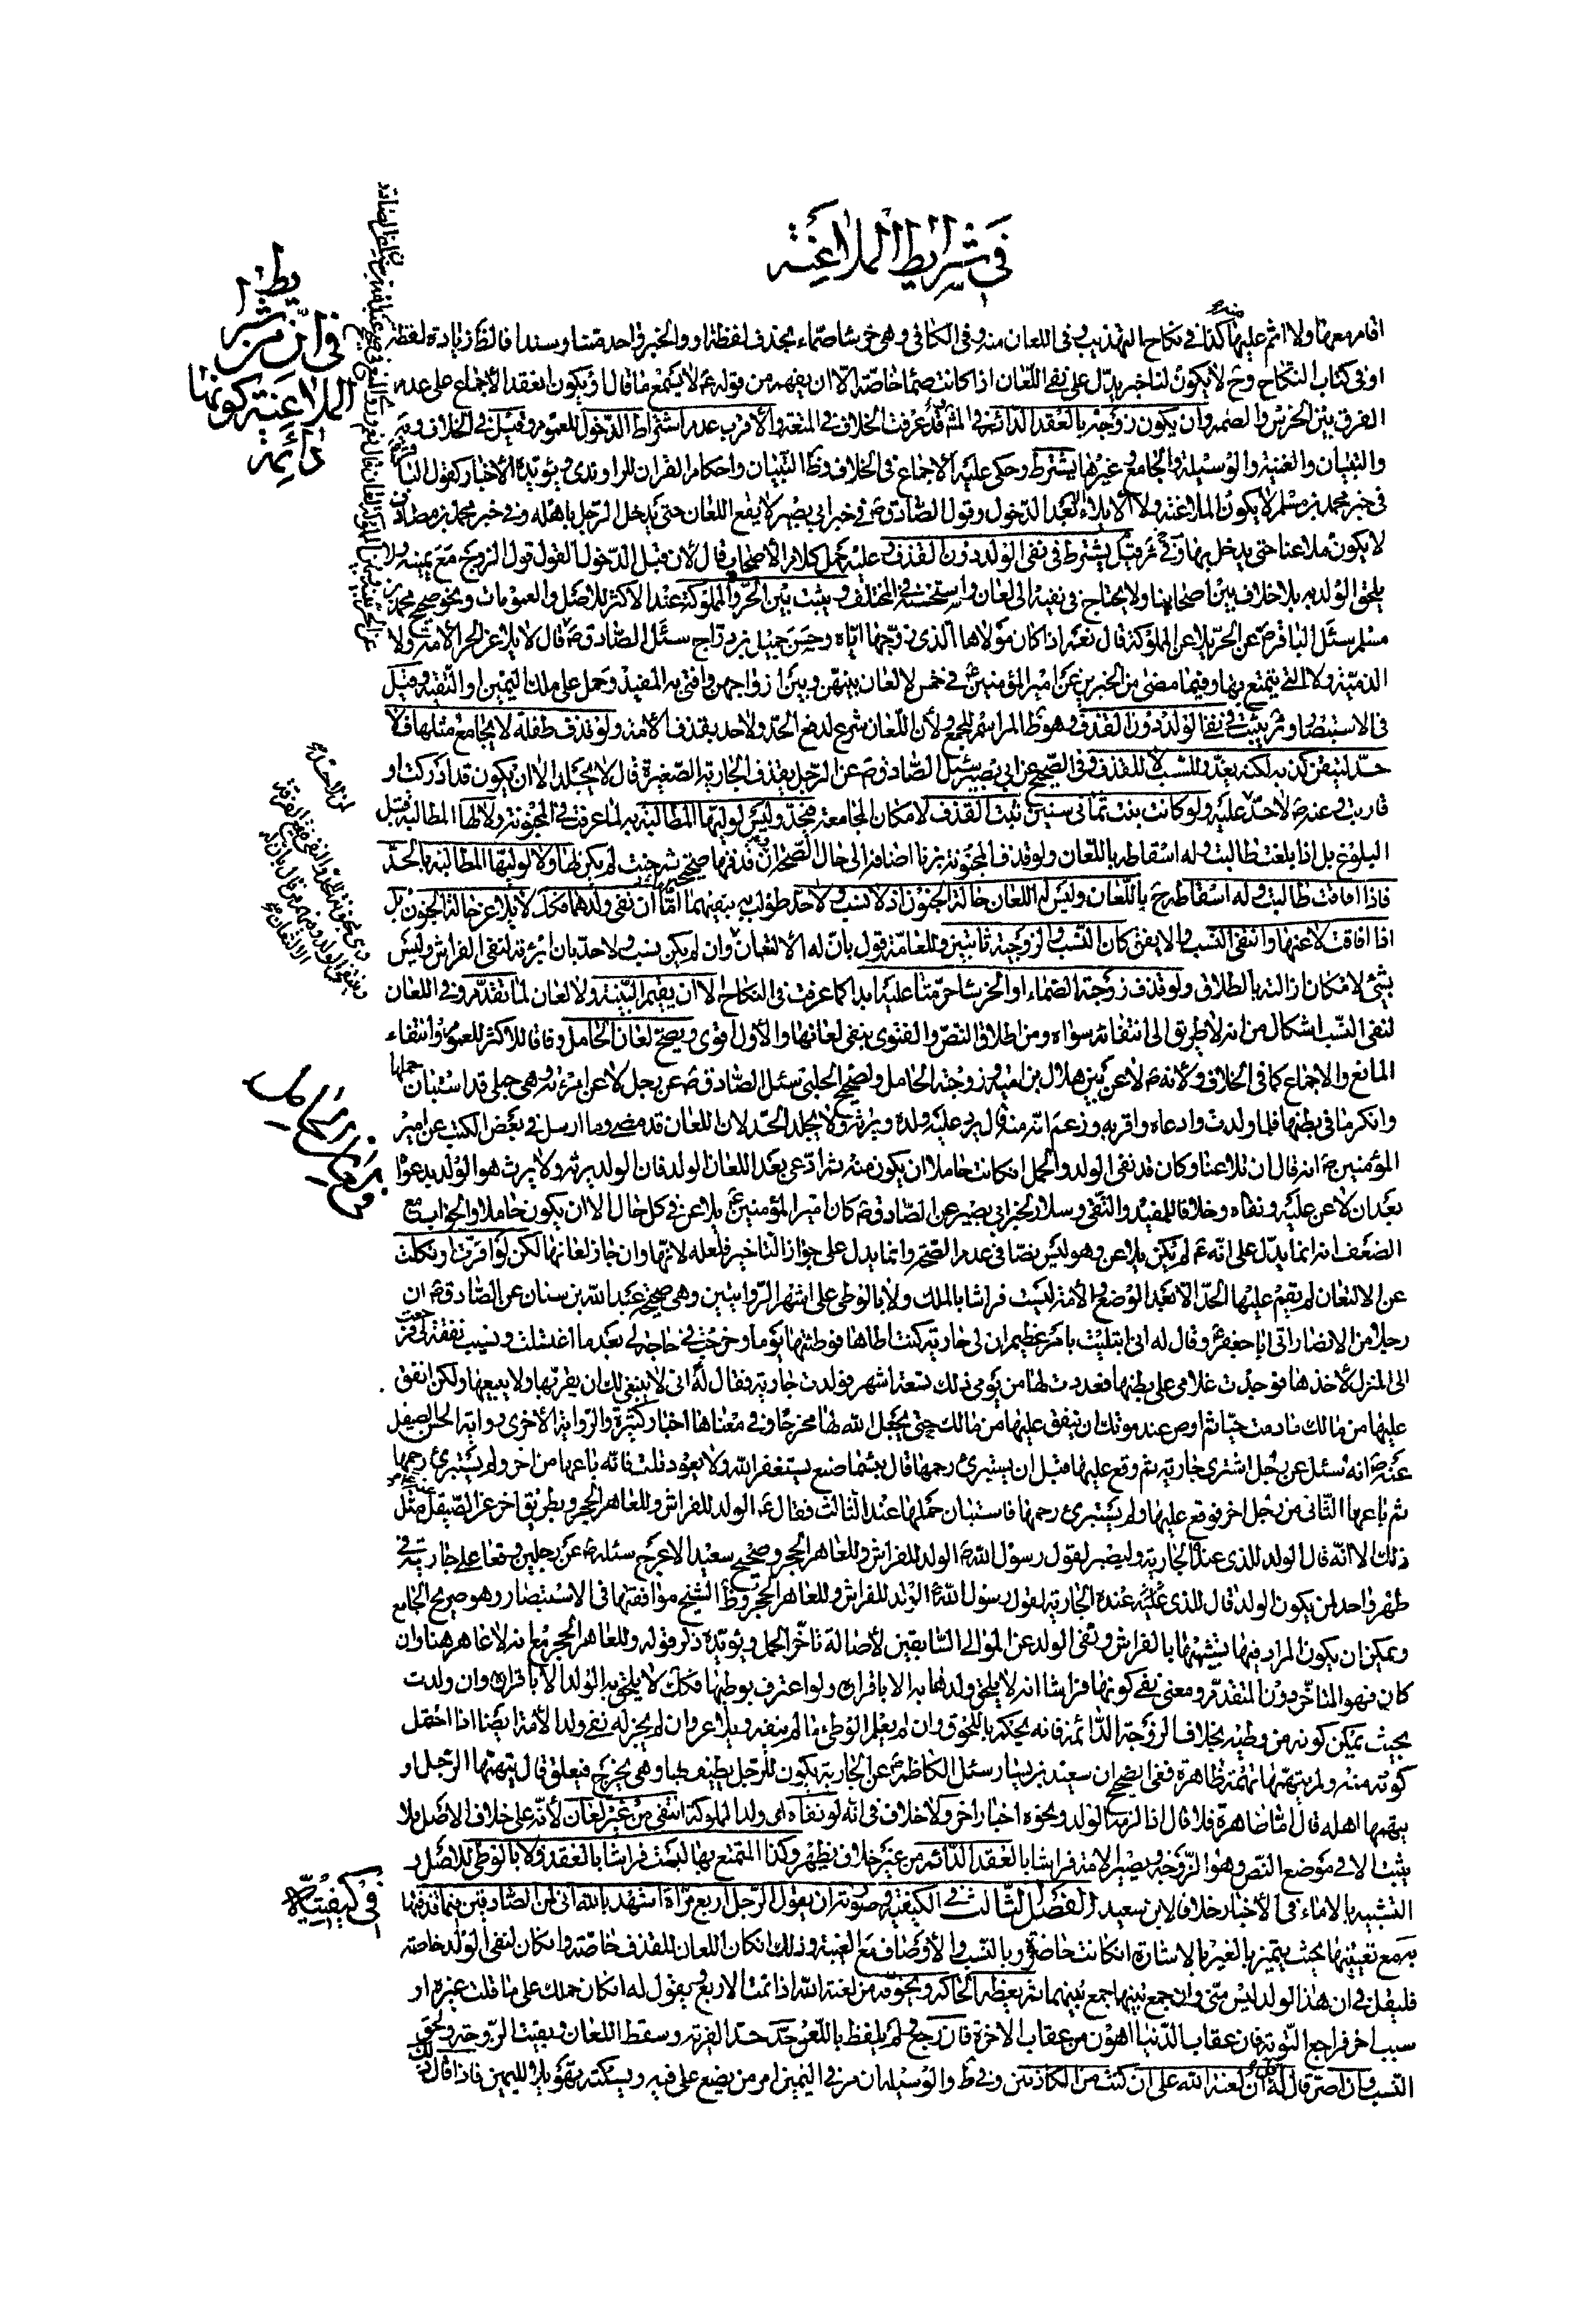 في شرايط الملاعنة
اقام معها ولا اثم عليها كذا في نكاح التهذيب وفي اللعان منه وفي الكافي وهي خرساء صماء بحذف لفظة او والخبر واحد متنا وسندا فالظ زيادة لفظة
او في كتاب النكاح وح لا يكون لنا خبر يدل على نفي اللعان اذا كانت صماء خاصة الا ان يفهم من قوله ع لا يسمع ما قال او يكون انعقد الاجماع على عدم
الفرق بين الخرس والصمم وان يكون زوجته بالعقد الدائم وقد عرفت الخلاف في المتعة والاقرب عدم اشتراط الدخول للعموم وقيل في الخلاف و
والتبيان والغنية والوسيلة والجامع وغيرها يشترط وحكى عليه الاجماع في الخلاف وظ التبيان واحكام القران للراوندي ويؤيده الاخبار كقول الباقر
في خبر محمد بن مسلم لا يكون الملاعنة ولا الايلاء الا بعد الدخول وقول الصادق ع في خبر ابي بصير لا يقع اللعان حتى يدخل الرجل باهله وفي خبر محمد بن مضارب
لا يكون ملاعنا حتى يدخل بها وفي ئر قيل يشترط في نفي الولد دون القذف وعليه حمل كلام الاصحاب قال لان قبل الدخول القول قول الزوج مع يمينه ولا
يلحق الولد به بلا خلاف بين اصحابنا ولا يحتاج في نفيه الى لعان واستحسنه في المختلف ويثبت بين الحر والمملوكة عند الاكثر للاصل والعمومات ونحو صحيح محمد بن
مسلم سئل الباقر ع عن الحر يلاعن المملوكة قال نعم اذا كان مولاها الذي زوجها اياه وحسن جميل بن دراج سئل الصادق ع قال لا يلاعن الحر الامة ولا
الذمية ولا التي يتمتع بها وفيما مضى من الخبرين عن امير المؤمنين ع في خمس لا لعان بينهن وبين ازواجهن وافتى به المفيد وحمل على ملك اليمين او التقية وقيل
في الاستبصار وئر يثبت في نفي الولد دون القذف وهو ظ المراسم للجمع ولان اللعان شرع لدفع الحد ولا حد بقذف الامة ولو قذف طفلة لا يجامع مثلها فلا
حد لتيقن كذبه لكنه يعزر للسب لا للقذف وفي الصحيح عن ابي بصير سئل الصادق ع عن الرجل يقذف الجارية الصغيرة قال لا يجلد الا ان يكون قد ادركت او
قاربت وعنه ع لا حد عليه ولو كانت بنت ثماني سنين ثبت القذف لامكان المجامعة فيحد وليس لوليها المطالبة به لما عرفت في المجنونة ولا لها المطالبة قبل
البلوغ بل اذا بلغت طالبت وله اسقاطه باللعان ولو قذف المجنونة بزنا اضافه الى حال الصحة او قذفها صحيحة ثم جنت لم يكن لها ولا لوليها المطالبة بالحد
فاذا افاقت طالبت وله اسقاطه ح باللعان وليس له اللعان حالة الجنون اذ لا نسب ولا حد طولب به بينهما اما ان نفى ولدها فكك لا يلاعن حالة الجنون بل
اذا افاقت لاعنها وانتفى النسب والا يفق كان النسب والزوجية ثابتين وللعامة قول بان له الالتعان وان لم يكن نسب ولا حد بان ابرئته لنفي الفراش وليس
بشئ لامكان ازالته بالطلاق ولو قذف زوجته الصماء او الخرساء حرمتا عليه ابدا كما عرفت في النكاح الا ان يقيم البينة ولا لعان لما تقدم وفي اللعان
لنفي النسب اشكال من انه لا طريق الى انتفائه سواه ومن اطلاق النص والفتوى بنفي لعانها والاول اقوى ويصح لعان الحامل وفاقا للاكثر للعموم وانتفاء
المانع والاجماع كما في الخلاف ولانه ع لاعن بين هلال بن امية وزوجته الحامل ولصحيح الحلبي سئل الصادق ع عن رجل لاعن امرئته وهي حبلى قد استبان حملها
وانكر ما في بطنها فلما ولدت وادعاه واقر به وزعم انه منه قال يرد عليه ولده ويرثه ولا يجلد الحد لان اللعان قد مضى وما ارسل في بعض الكتب عن امير
المؤمنين ع انه قال ان تلاعنا وكان قد نفى الولد والحمل ان كانت حاملا ان يكون منه ثم ادعى بعد اللعان الولد فان الولد يرثه ولا يرث هو الولد بدعواه
بعد ان لاعن عليه ونفاه وخلافا للمفيد والتقي وسلار لخبر ابي بصير عن الصادق ع كان امير المؤمنين ع يلاعن في كل حال الا ان يكون حاملا والجواب مع
الضعف انه انما يدل على انه ع لم يكن يلاعن وهو ليس نصا في عدم الصحة وانما يدل على جواز التاخير فلعله لانها وان جاز لعانها لكن لو اقرت او نكلت
عن الالتعان لم يقم عليها الحد الا بعد الوضع والامة ليست فراشا بالملك ولا بالوطي على اشهر الروايتين وهي صحيحة عبد الله بن سنان عن الصادق ع ان
رجلا من الانصار اتى ابا جعفر ع وقال له اني ابتليت بامر عظيم ان لي جارية كنت اطاها فوطئتها يوما وخرجت في حاجة لي بعد ما اغتسلت ونسيت نفقة لي فرجعت
الى المنزل لاخذها فوجدت غلامي على بطنها فعددت لها من يومي ذلك تسعة اشهر فولدت جارية فقال له اني لا ينبغي لك ان يقربها ولا يبيعها ولكن انفق
عليها من مالك ما دمت حيا ثم اوص عند موتك ان ينفق عليها من مالك حتى يجعل الله لها مخرجا وفي معناها اخبار كثيرة والرواية الاخرى رواية الحسن الصيقل
عنه ع انه سئل عن رجل اشترى جارية ثم وقع عليها قبل ان يستبرئ رحمها قال بئسما صنع يستغفر الله ولا يعود قلت فانه باعها من اخر ولم يستبرئ رحمها
ثم باعها الثاني من رجل اخر فوقع عليها ولم يستبرئ رحمها فاستبان حملها عند الثالث فقال ع الولد للفراش وللعاهر الحجر وبطريق اخر عن الصيقل مثل
ذلك الا انه قال الولد للذي عنده الجارية وليصبر لقول رسول الله ص الولد للفراش وللعاهر الحجر وصحيح سعيد الاعرج سئله ع عن رجلين وقعا على جارية في
طهر واحد لمن يكون الولد قال للذي عنده الجارية لقول رسول الله ص الولد للفراش وللعاهر الحجر وظ الشيخ موافقتها في الاستبصار وهو صريح الجامع
ويمكن ان يكون المراد فيها تشبيهها بالفراش ونفي الولد عن الموالي السابقين لاصالة تاخر الحمل ويؤيده ذكر قوله وللعاهر الحجر مع انه لا عاهر هنا وان
كان فهو المتاخر دون المتقدم ومعنى نفي كونها فراشا انه لا يلحق ولدها به الا باقراره ولو اعترف بوطيها فكك لا يلحق به الولد الا باقراره وان ولدت
بحيث يمكن كونه من وطيه بخلاف الزوجة الدائمة فانه يحكم باللحوق وان لم يعلم الوطء ما لم ينفه ويلاعن وان لم يجز له نفي ولد الامة ايضا اذا احتمل
كونه منه ولم يتهمها تهمة ظاهرة ففي الصحيح ان سعيد بن يسار سئل الكاظم ع عن الجارية يكون للرجل يطيف بها وهي يخرج فيعلق قال يتهمها الرجل او
يتهمها اهله قال اما ظاهرة فلا قال اذا لزمه الولد ونحوه اخبار اخر ولا خلاف في انه لو نفاه اي ولد المملوكة انتفى من غير لعان لانه على خلاف الاصل فلا
يثبت الا في موضع النص وهو الزوجة ويصير الامة فراشا بالعقد الدائم من غير خلاف يظهر وكذا المتمتع بها ليست فراشا بالعقد ولا بالوطي للاصل و
التشبيه بالاماء في الاخبار خلافا لابن سعيد الفصل الثالث في الكيفية وصورته ان يقول الرجل اربع مرات اشهد بالله اني لمن الصادقين فيما قذفتها
به مع تعيينها بحيث يتميز بالغير بالاشارة ان كانت حاضرة وبالنسب والاوصاف مع الغيبة وذلك ان كان اللعان للقذف خاصة وان كان لنفي الولد خاصة
فليقل في ان هذا الولد ليس مني وان جمع بينهما جمع بينهما ثم يعظه الحاكم ويخوفه من لعنة الله اذا تمت الاربع ويقول له ان كان حملك على ما قلت غيرة او
سبب اخر فراجع التوبة فان عقاب الدنيا اهون من عقاب الاخرة فان رجع ولم يلفظ باللعن حد حد الفرية وسقط اللعان وبقيت الزوجة ولحق
النسب وان اصر قال له قل ان لعنة الله علي ان كنت من الكاذبين وفي ط والوسيلة ان مر في اليمين امر من يضع على فيه ويسكته بهويلا لليمين فاذا قال ذلك
في ان من شرايط
الملاعنة كونها
دائمة
في لعان الحامل
في كيفيته